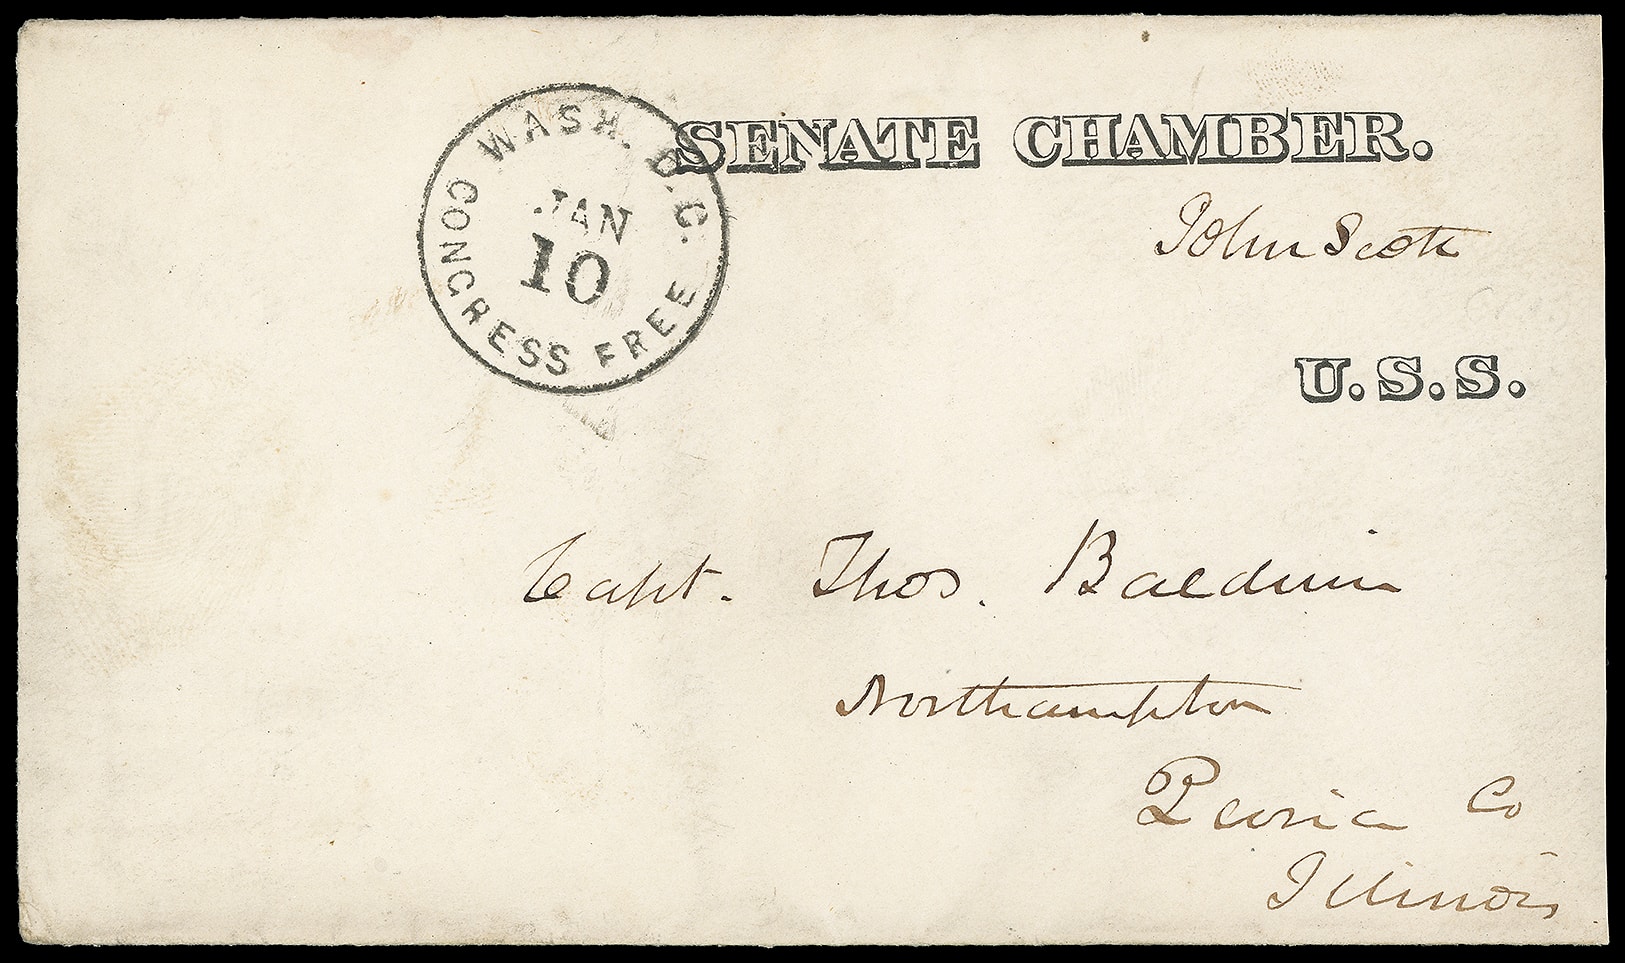 WASH. D.C.
CONGRESS FREE
JAN
10
SENATE CHAMBER.
John Scott
U.S.S.
Capt. Thos. Baldwin
Northampton
Peoria Co
Illinois